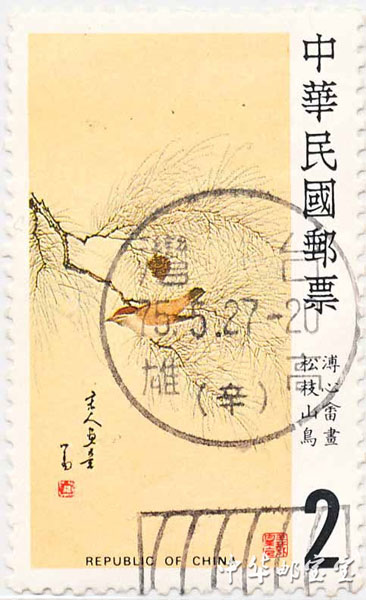 中華民國郵票
溥心畬畫
松枝山鳥
台灣
75.5.27-20
高雄
(辛)
2
REPUBLIC OF CHINA
中华邮宝室